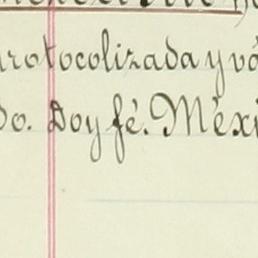 rotocolizada y vá
Do. Doy fé. Méxi